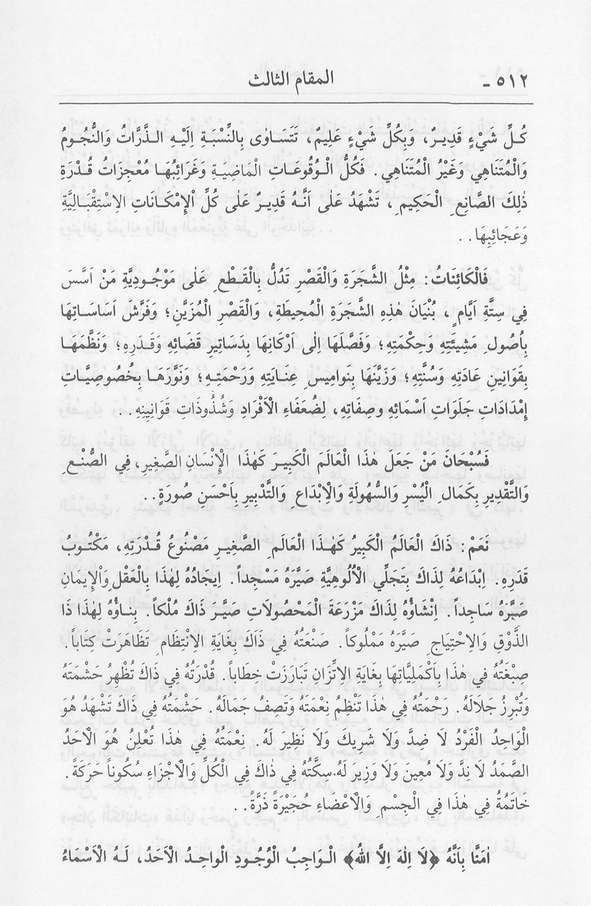 ٥١٢ - المقام الثالث
كُلِّ شَيْءٍ قَدِيرٌ، وَبِكُلِّ شَيْءٍ عَلِيمٌ، تَتَسَاوٰى بِالنِّسْبَةِ اِلَيْهِ الذَّرَّاتُ وَالنُّجُومُ
وَالْمُتَنَاهِي وَغَيْرُ الْمُتَنَاهِي. فَكُلُّ الْوُقُوعَاتِ الْمَاضِيَةِ وَغَرَائِبُهَا مُعْجِزَاتُ قُدْرَةِ
ذٰلِكَ الصَّانِعِ الْحَكِيمِ، تَشْهَدُ عَلٰى اَنَّهُ قَدِيرٌ عَلٰى كُلِّ الْاِمْكَانَاتِ الْاِسْتِقْبَالِيَّةِ
وَعَجَائِبِهَا..
فَالْكَائِنَاتُ: مِثْلُ الشَّجَرَةِ وَالْقَصْرِ تَدُلُّ بِالْقَطْعِ عَلٰى مَوْجُودِيَّةِ مَنْ اَسَّسَ
فِي سِتَّةِ اَيَّامٍ، بُنْيَانَ هٰذِهِ الشَّجَرَةِ الْمُحِيطَةِ، وَالْقَصْرِ الْمُزَيَّنِ؛ وَفَرَّشَ اَسَاسَاتِهَا
بِاُصُولِ مَشِيئَتِهِ وَحِكْمَتِهِ؛ وَفَصَّلَهَا اِلٰى اَرْكَانِهَا بِدَسَاتِيرِ قَضَائِهِ وَقَدَرِهِ؛ وَنَظَّمَهَا
بِقَوَانِينِ عَادَتِهِ وَسُنَّتِهِ؛ وَزَيَّنَهَا بِنَوَامِيسِ عِنَايَتِهِ وَرَحْمَتِهِ؛ وَنَوَّرَهَا بِخُصُوصِيَّاتِ
اِمْدَادَاتِ جَلَوَاتِ اَسْمَائِهِ وَصِفَاتِهِ، لِضُعَفَاءِ الْاَفْرَادِ وَشُذُوذَاتِ قَوَانِينِهِ..
فَسُبْحَانَ مَنْ جَعَلَ هٰذَا الْعَالَمَ الْكَبِيرَ كَهٰذَا الْاِنْسَانِ الصَّغِيرِ، فِي الصُّنْعِ
وَالتَّقْدِيرِ بِكَمَالِ الْيُسْرِ وَالسُّهُولَةِ وَالْاِبْدَاعِ وَالتَّدْبِيرِ بِاَحْسَنِ صُورَةٍ..
نَعَمْ: ذَاكَ الْعَالَمُ الْكَبِيرُ كَهٰذَا الْعَالَمِ الصَّغِيرِ مَصْنُوعُ قُدْرَتِهِ، مَكْتُوبُ
قَدَرِهِ. اِبْدَاعُهُ لِذَاكَ بِتَجَلِّي الْاُلُوهِيَّةِ صَيَّرَهُ مَسْجِداً. اِيجَادُهُ لِهٰذَا بِالْعَقْلِ وَالْاِيمَانِ
صَيَّرَهُ سَاجِداً. اِنْشَاؤُهُ لِذَاكَ مَزْرَعَةَ الْمَحْصُولَاتِ صَيَّرَ ذَاكَ مُلْكاً. بِنَاؤُهُ لِهٰذَا ذَا
الذَّوْقِ وَالِاحْتِيَاجِ صَيَّرَهُ مَمْلُوكاً. صَنْعَتُهُ فِي ذَاكَ بِغَايَةِ الْاِنْتِظَامِ تَظَاهَرَتْ كِتَاباً.
صِبْغَتُهُ فِي هٰذَا بِاَكْمَلِيَّاتِهَا بِغَايَةِ الْاِتِّزَانِ تَبَارَزَتْ خِطَاباً. قُدْرَتُهُ فِي ذَاكَ تُظْهِرُ حَشْمَتَهُ
وَتُبْرِزُ جَلَالَهُ. رَحْمَتُهُ فِي هٰذَا تَنْظِمُ نِعْمَتَهُ وَتَصِفُ جَمَالَهُ. حَشْمَتُهُ فِي ذَاكَ تَشْهَدُ هُوَ
الْوَاحِدُ الْفَرْدُ لَا ضِدَّ وَلَا شَرِيكَ وَلَا نَظِيرَ لَهُ. نِعْمَتُهُ فِي هٰذَا تُعْلِنُ هُوَ الْاَحَدُ
الصَّمَدُ لَا نِدَّ وَلَا مُعِينَ وَلَا وَزِيرَ لَهُ. سِكَّتُهُ فِي ذَاكَ فِي الْكُلِّ وَالْاَجْزَاءِ سُكُوناً حَرَكَةً.
خَاتَمُهُ فِي هٰذَا فِي الْجِسْمِ وَالْاَعْضَاءِ حُجَيْرَةً ذَرَّةً..
اٰمَنَّا بِاَنَّهُ ﴿لَا اِلٰهَ اِلَّا اللّٰهُ﴾ الْوَاجِبُ الْوُجُودِ الْوَاحِدُ الْاَحَدُ، لَهُ الْاَسْمَاءُ